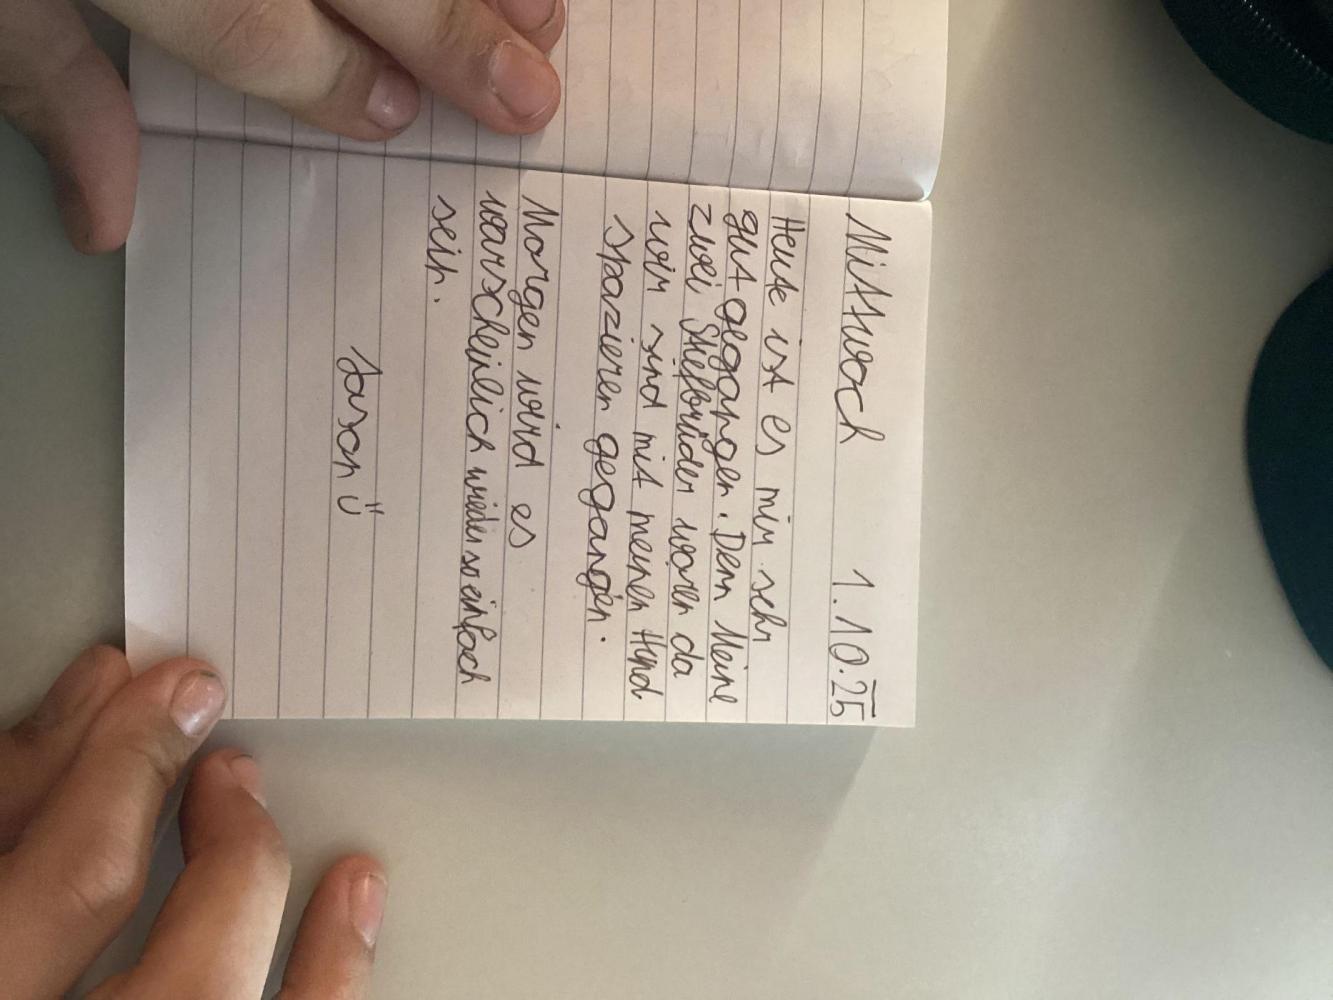 Mittwoch 1.10.25
Heute ist es mir sehr
gut gegangen. Denn Meine
zwei Stiefbrüder waren da
wir sind mit meinen Hund
spazieren gegangen.
Morgen wird es
warscheinlich wieder so einfach
sein.
Jason Ü